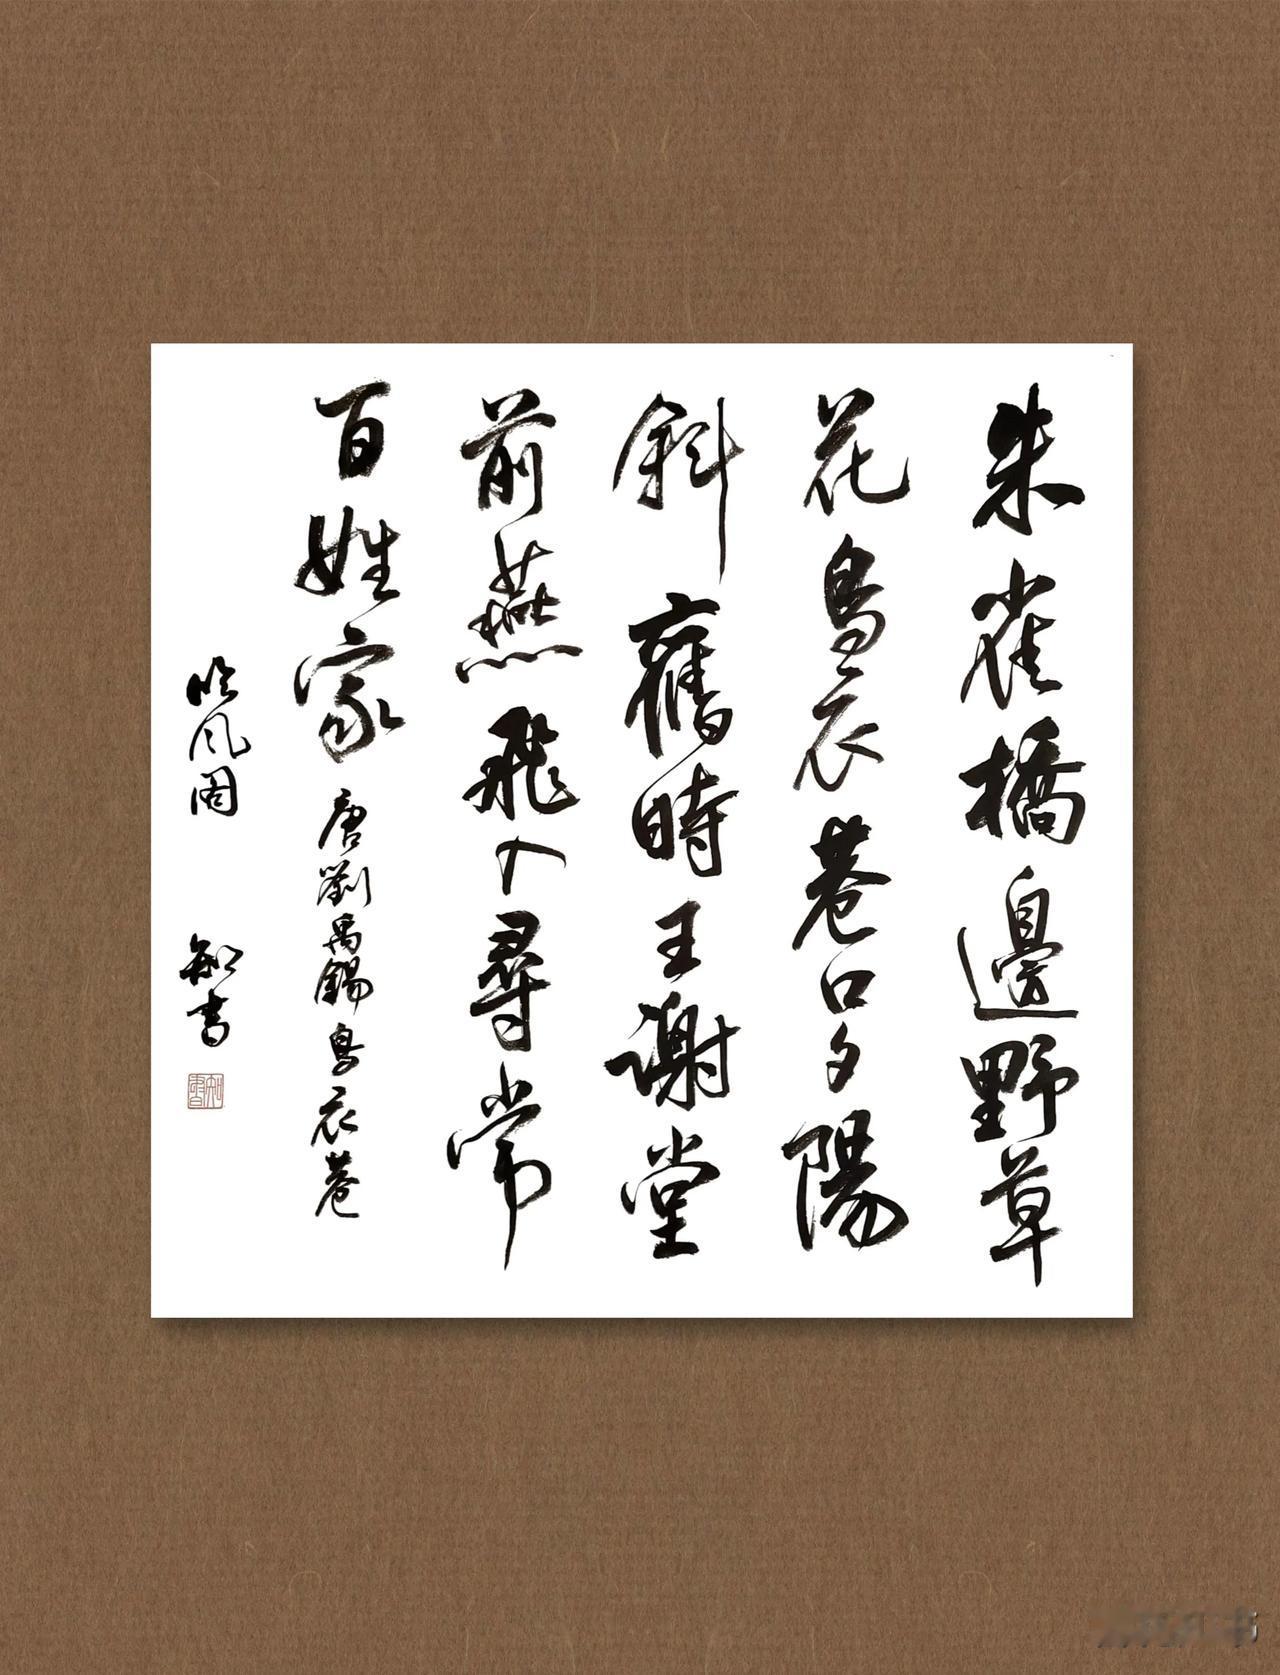 朱雀橋邊野草
花烏衣巷口夕陽
斜舊時王謝堂
前燕飛入尋常
百姓家 唐劉禹錫烏衣巷
吟风阁 知书
知书